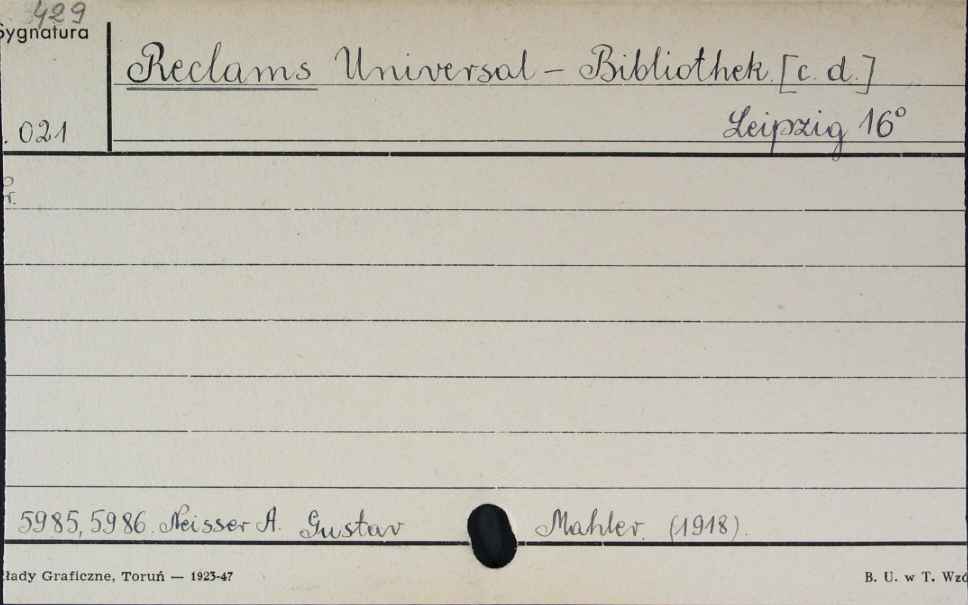 429
Sygnatura
Reclams Universal - Bibliothek. [c. d.]
. 021
Leipzig 16°
5985, 5986. Neisser A. Gustav Mahler. (1918).
kłady Graficzne, Toruń — 1923-47
B. U. w T. Wzó